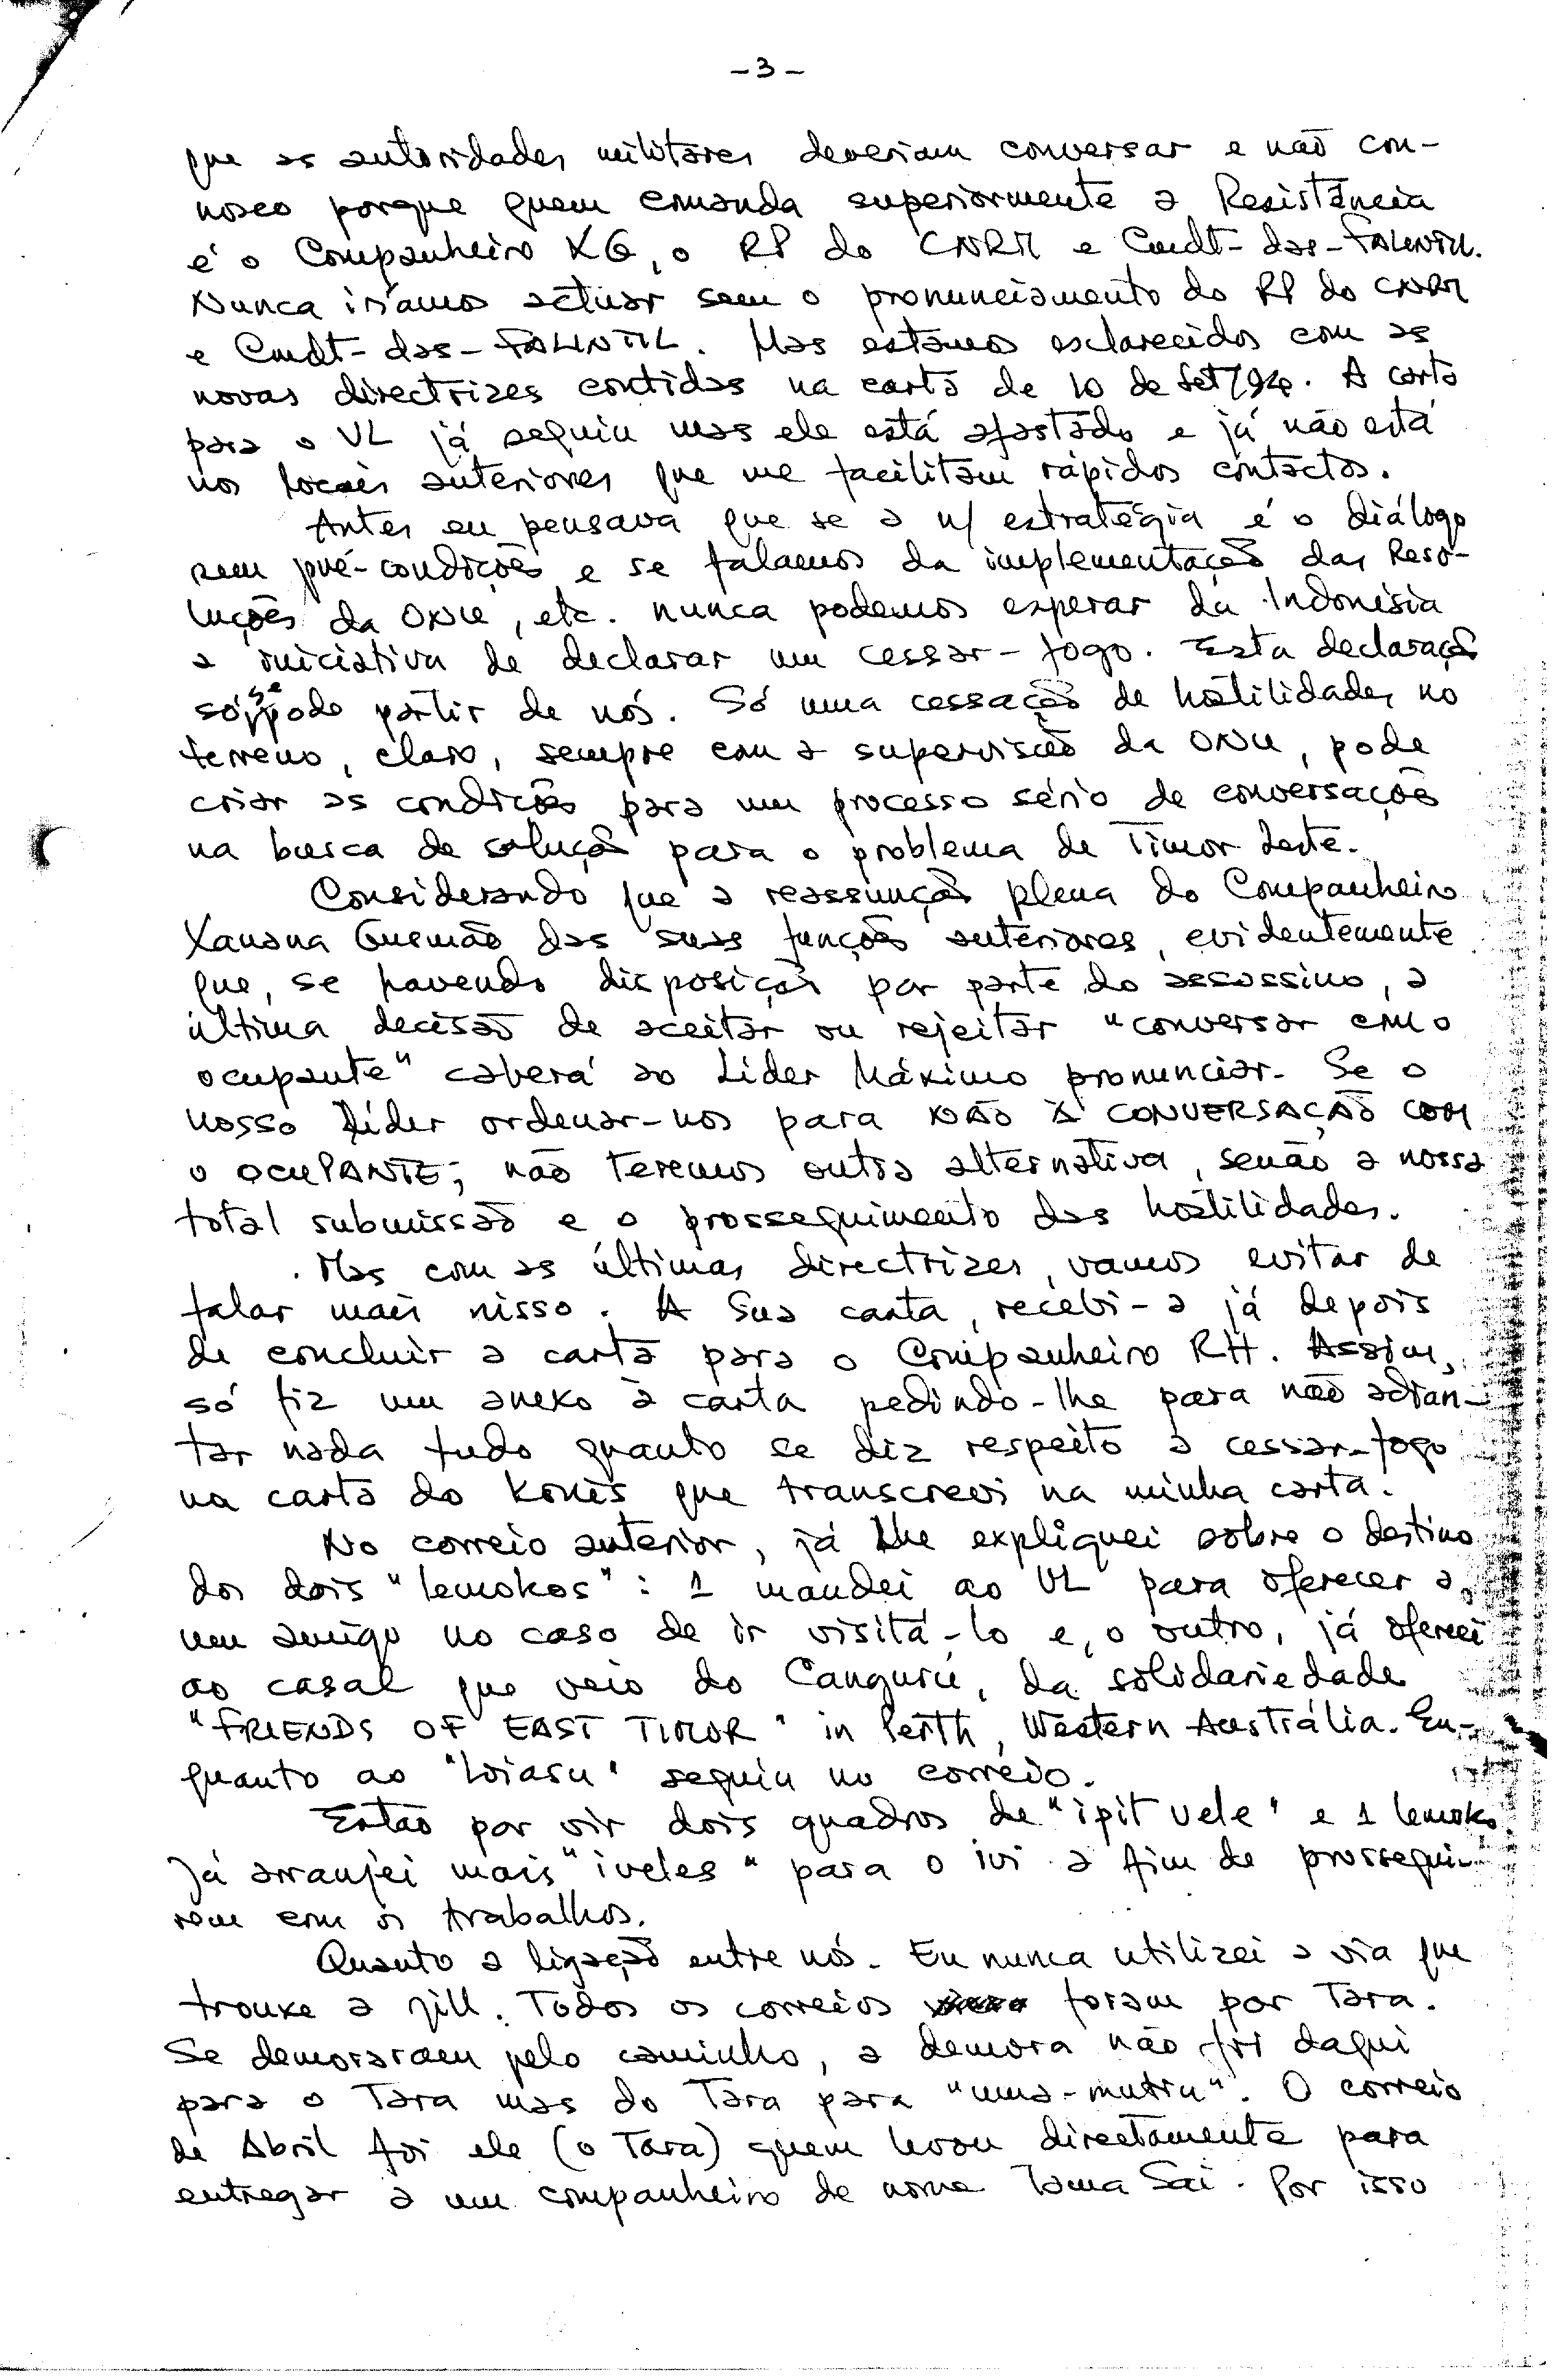 - 3 -
que as autoridades militares deveriam conversar e não con-
nosco porque quem comanda superiormente a Resistência
é o Companheiro XG, o RP do CNRM e Cmdt-das-FALINTIL.
Nunca iríamos actuar sem o pronunciamento do RP do CNRM
e Cmdt-das-FALINTIL. Mas estamos esclarecidos com as
novas directrizes contidas na carta de 10 de Set/94. A carta
para o VL já seguiu mas ele está afastado e já não está
nos locais anteriores que me facilitam rápidos contactos.
Antes eu pensava que se a n/ estratégia é o diálogo
sem pré-condições e se falamos da implementação das Reso-
luções da ONU, etc. nunca podemos esperar da Indonésia
a iniciativa de declarar um cessar-fogo. Esta declaração
só se pode partir de nós. Só uma cessação de hostilidades no
terreno, claro, sempre com a supervisão da ONU, pode
criar as condições para um processo sério de conversações
na busca de solução para o problema de Timor Leste.
Considerando que a reassunção plena do Companheiro
Xanana Gusmão das suas funções anteriores, evidentemente
que, se havendo disposição por parte do assassino, a
última decisão de aceitar ou rejeitar "conversar com o
ocupante" caberá ao Líder Máximo pronunciar. Se o
nosso Líder ordenar-nos para NÃO À CONVERSAÇÃO COM
O OCUPANTE; não teremos outra alternativa, senão a nossa
total submissão e o prosseguimento das hostilidades.
. Mas com as últimas directrizes, vamos evitar de
falar mais nisso. A Sua carta, recebi-a já depois
de concluir a carta para o Companheiro RH. Assim,
só fiz um anexo à carta pedindo-lhe para não adian-
tar nada tudo quanto se diz respeito a cessar-fogo
na carta do Konis que transcrevi na minha carta.
No correio anterior, já lhe expliquei sobre o destino
dos dois "lemokos": 1 mandei ao VL para oferecer a
um amigo no caso de ir visitá-lo e, o outro, já ofereci
ao casal que veio do Canguru, da solidariedade
"FRIENDS OF EAST TIMOR" in Perth, Western Austrália. En-
quanto ao "loiasu" seguiu no correio.
Estão por vir dois quadros de "ipit vele" e 1 lemoko.
Já arranjei mais "iveles" para o ivi a fim de prossegui-
rem com os trabalhos.
Quanto a ligação entre nós. Eu nunca utilizei a via que
trouxe a Jill. Todos os correios foram por Tara.
Se demoraram pelo caminho, a demora não foi daqui
para o Tara mas do Tara para "uma-mutin". O correio
de Abril foi ele (o Tara) quem levou directamente para
entregar a um companheiro de nome Tama Sai. Por isso